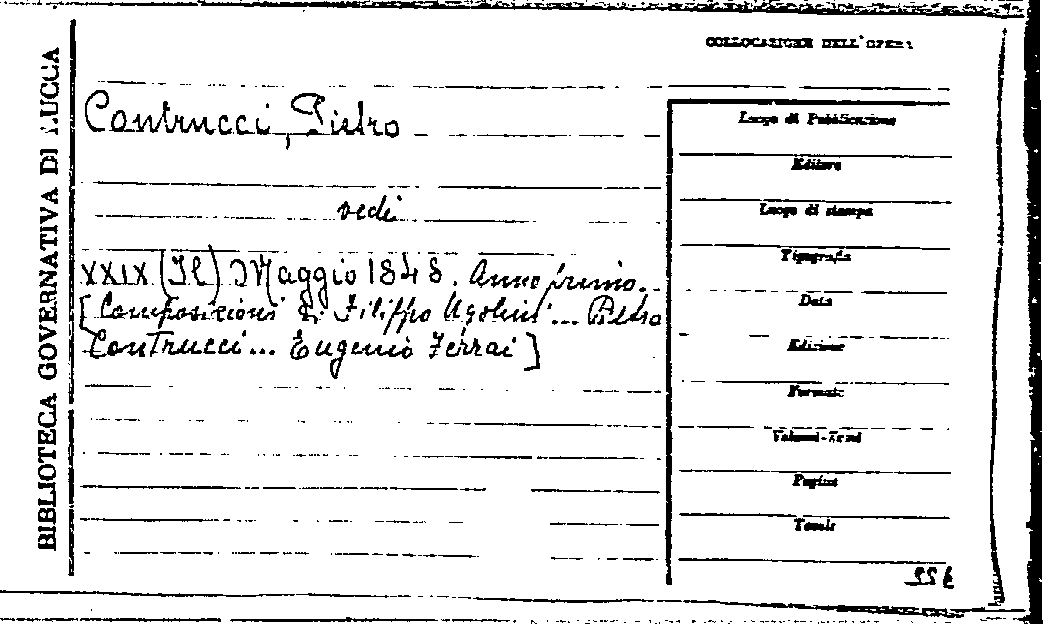 BIBLIOTECA GOVERNATIVA DI LUCCA
COLLOCAZIONE DELL'OPERA
Contrucci, Pietro
vedi
XXIX (Il) Maggio 1848. Anno primo.
[Composizioni di Filippo Ugolini... Pietro
Contrucci... Eugenio Ferrai]
Luogo di Pubblicazione
Editore
Luogo di stampa
Tipografia
Data
Edizione
Formato
Volumi-Tomi
Pagine
Tavole